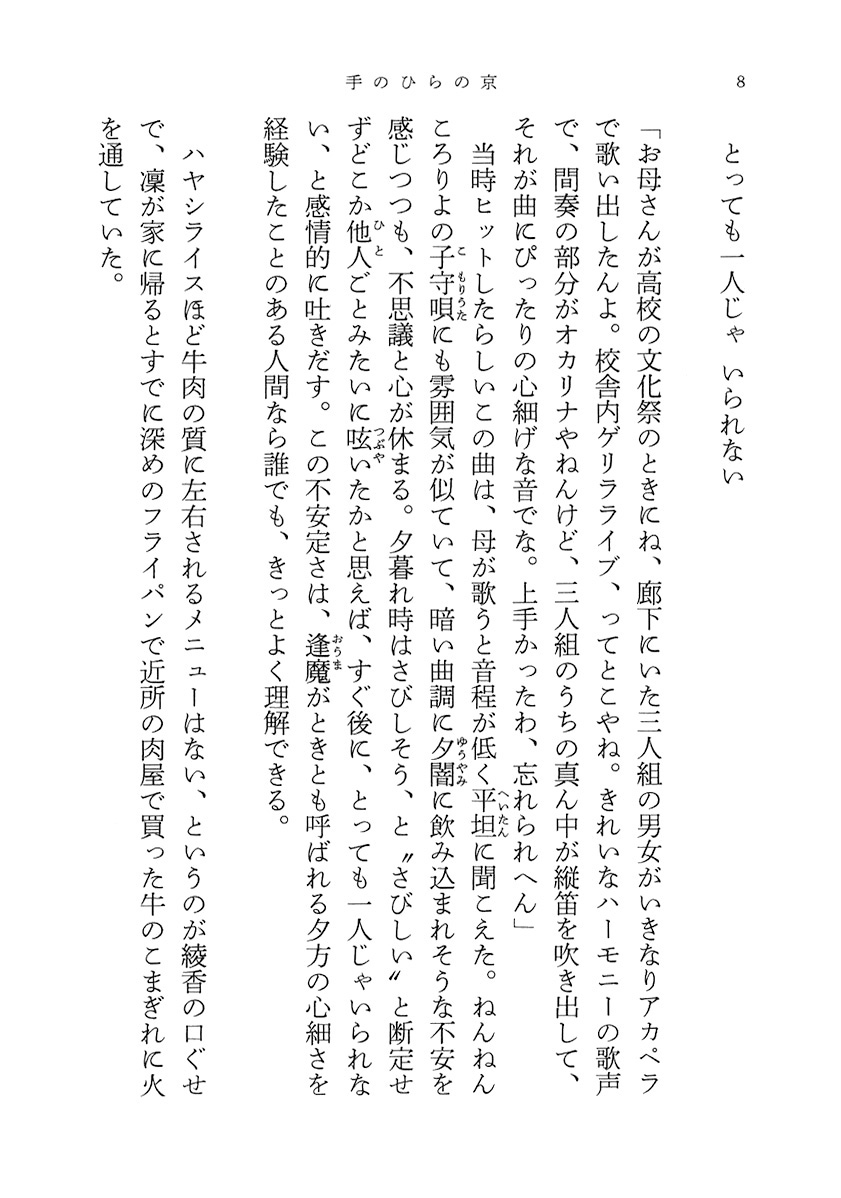 8
手のひらの京
とっても一人じゃ いられない
「お母さんが高校の文化祭のときにね、廊下にいた三人組の男女がいきなりアカペラ
で歌い出したんよ。校舎内ゲリラライブ、ってとこやね。きれいなハーモニーの歌声
で、間奏の部分がオカリナやねんけど、三人組のうちの真ん中が縦笛を吹き出して、
それが曲にぴったりの心細げな音でな。上手かったわ、忘れられへん」
当時ヒットしたらしいこの曲は、母が歌うと音程が低く平坦に聞こえた。ねんねん
ころりよの子守唄にも雰囲気が似ていて、暗い曲調に夕闇に飲み込まれそうな不安を
感じつつも、不思議と心が休まる。夕暮れ時はさびしそう、と〝さびしい〟と断定せ
ずどこか他人ごとみたいに呟いたかと思えば、すぐ後に、とっても一人じゃいられな
い、と感情的に吐きだす。この不安定さは、逢魔がときとも呼ばれる夕方の心細さを
経験したことのある人間なら誰でも、きっとよく理解できる。
ハヤシライスほど牛肉の質に左右されるメニューはない、というのが綾香の口ぐせ
で、凜が家に帰るとすでに深めのフライパンで近所の肉屋で買った牛のこまぎれに火
を通していた。